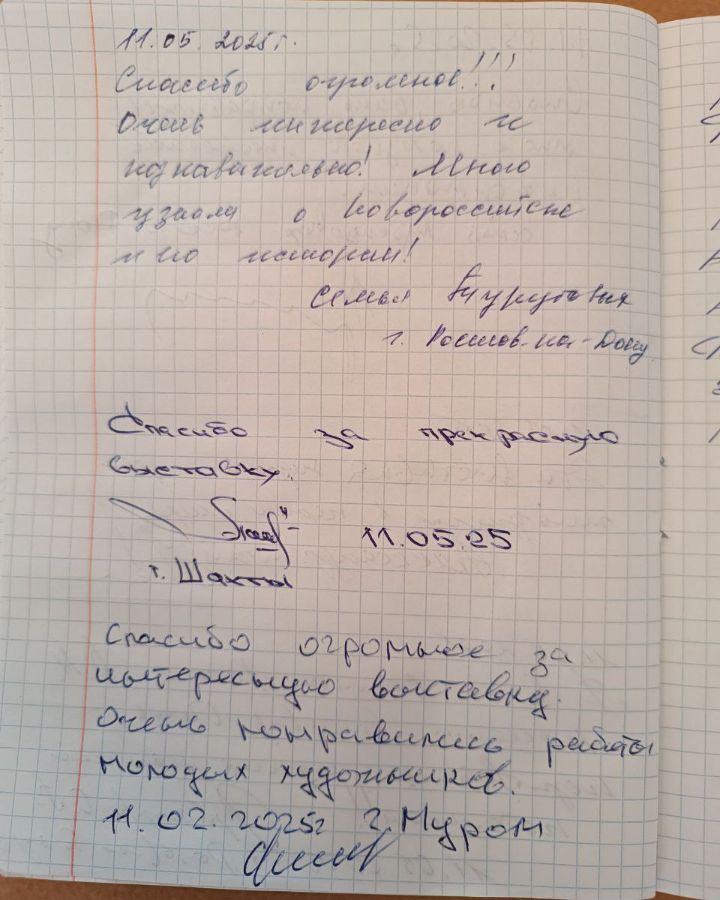 11.05.2025г.
Спасибо огромное!!!
Очень интересно и
познавательно! Много
узнали о Новороссийске
и его истории!
Семья
г. Ростов-на-Дону
Спасибо за прекрасную
выставку.
11.05.25
г. Шахты
Спасибо огромное за
интересную выставку.
Очень понравились работы
молодых художников.
11.02.2025г г. Муром